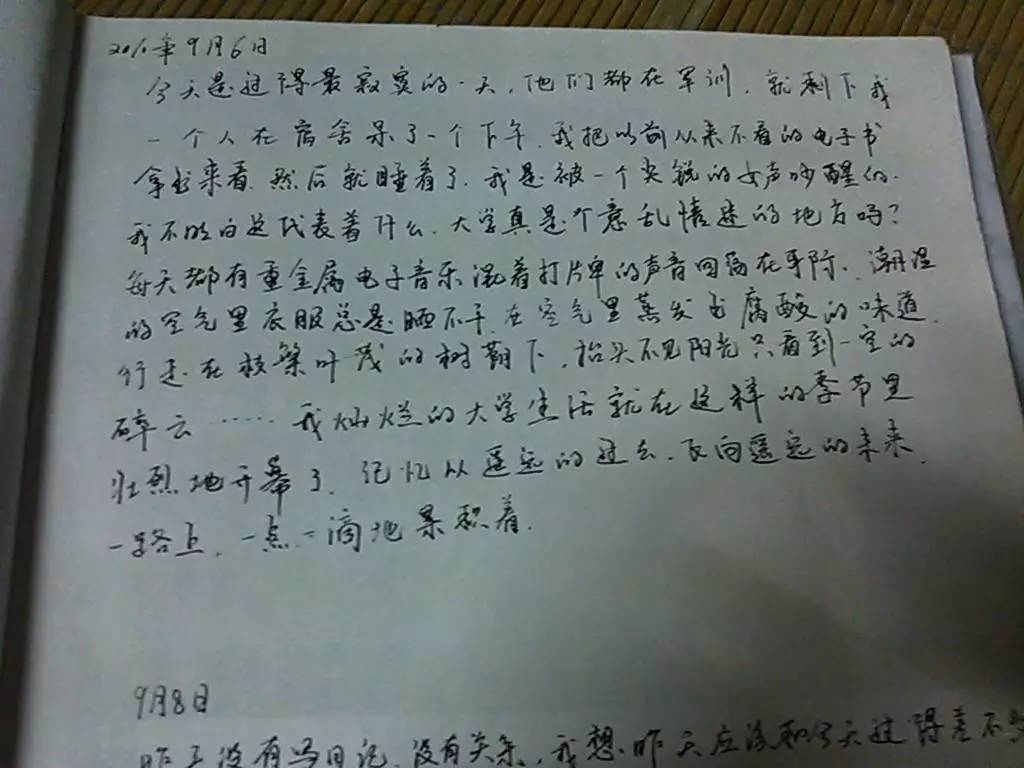 201年9月6日
今天是过得最寂寞的一天,他们都在军训,就剩下我
一个人在宿舍呆了一个下午.我把以前从来不看的电子书
拿出来看.然后就睡着了.我是被一个尖锐的女声吵醒的.
我不明白这代表着什么.大学真是个意乱情迷的地方吗?
每天都有重金属电子音乐混着打片单的声音回荡在耳际.潮湿
的空气里衣服总是晒不干.在空气里蒸发出腐酸的味道.
行走在枝繁叶茂的树荫下,抬头不见阳光只看到一空的
碎云……我灿烂的大学生活就在这样的季节里
壮烈地开幕了.记忆从遥远的过去.反向遥远的未来.
一路上.一点一滴地累积着.
9月8日
昨天没有写日记.没有关系,我想.昨天应该和今天过得差不多